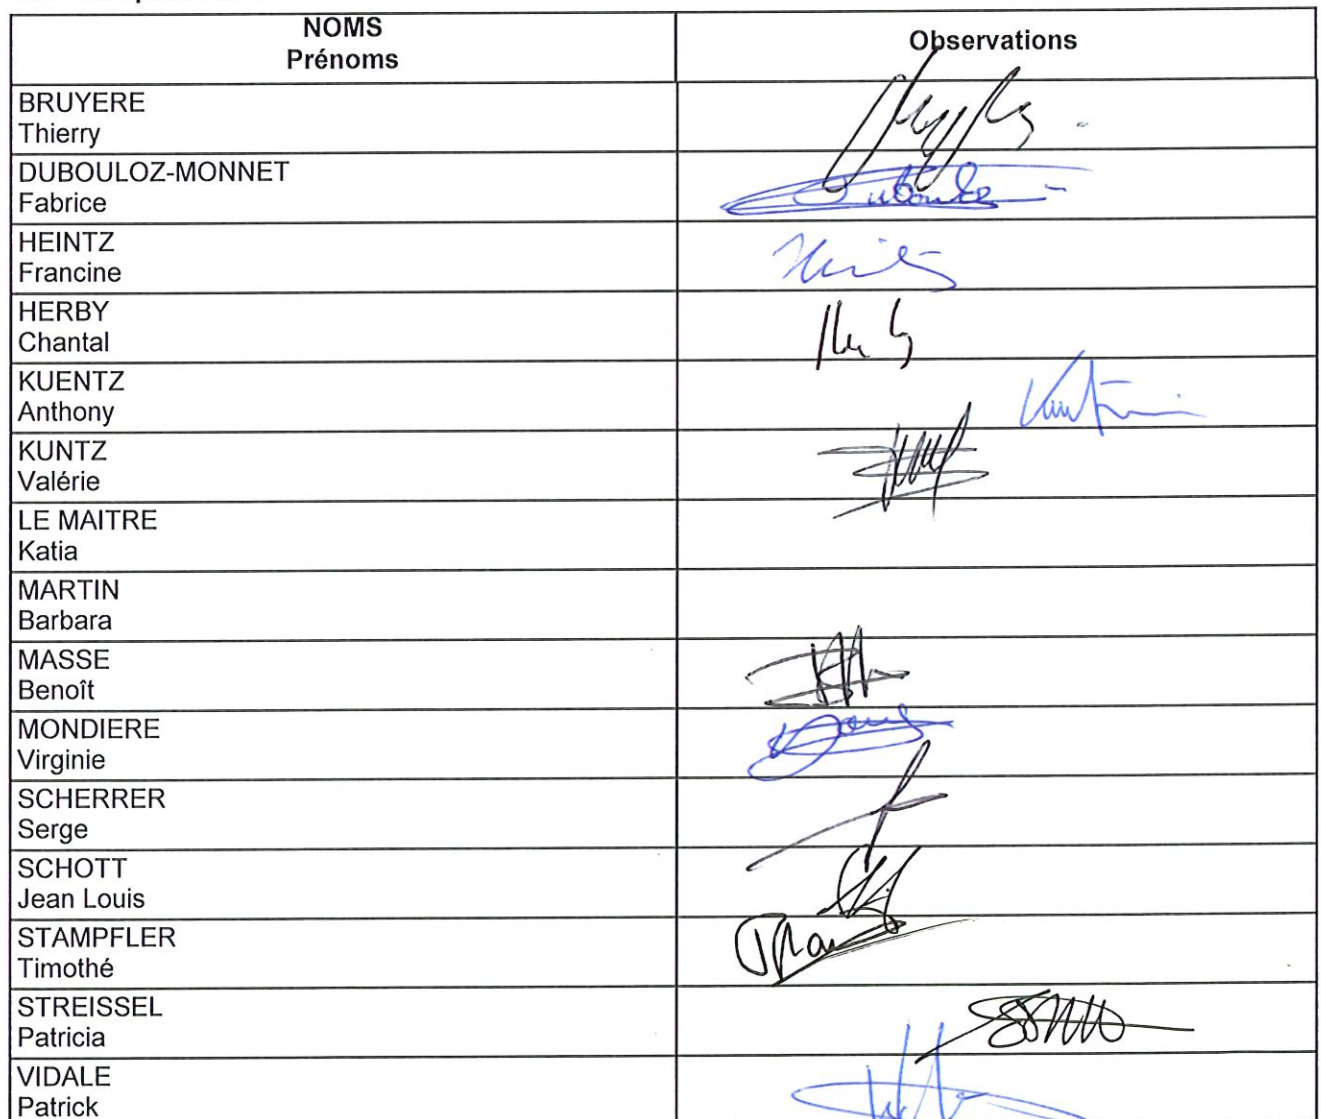 NOMS
Prénoms
Observations
BRUYERE
Thierry
DUBOULOZ-MONNET
Fabrice
HEINTZ
Francine
HERBY
Chantal
KUENTZ
Anthony
KUNTZ
Valérie
LE MAITRE
Katia
MARTIN
Barbara
MASSE
Benoît
MONDIERE
Virginie
SCHERRER
Serge
SCHOTT
Jean Louis
STAMPFLER
Timothé
STREISSEL
Patricia
VIDALE
Patrick